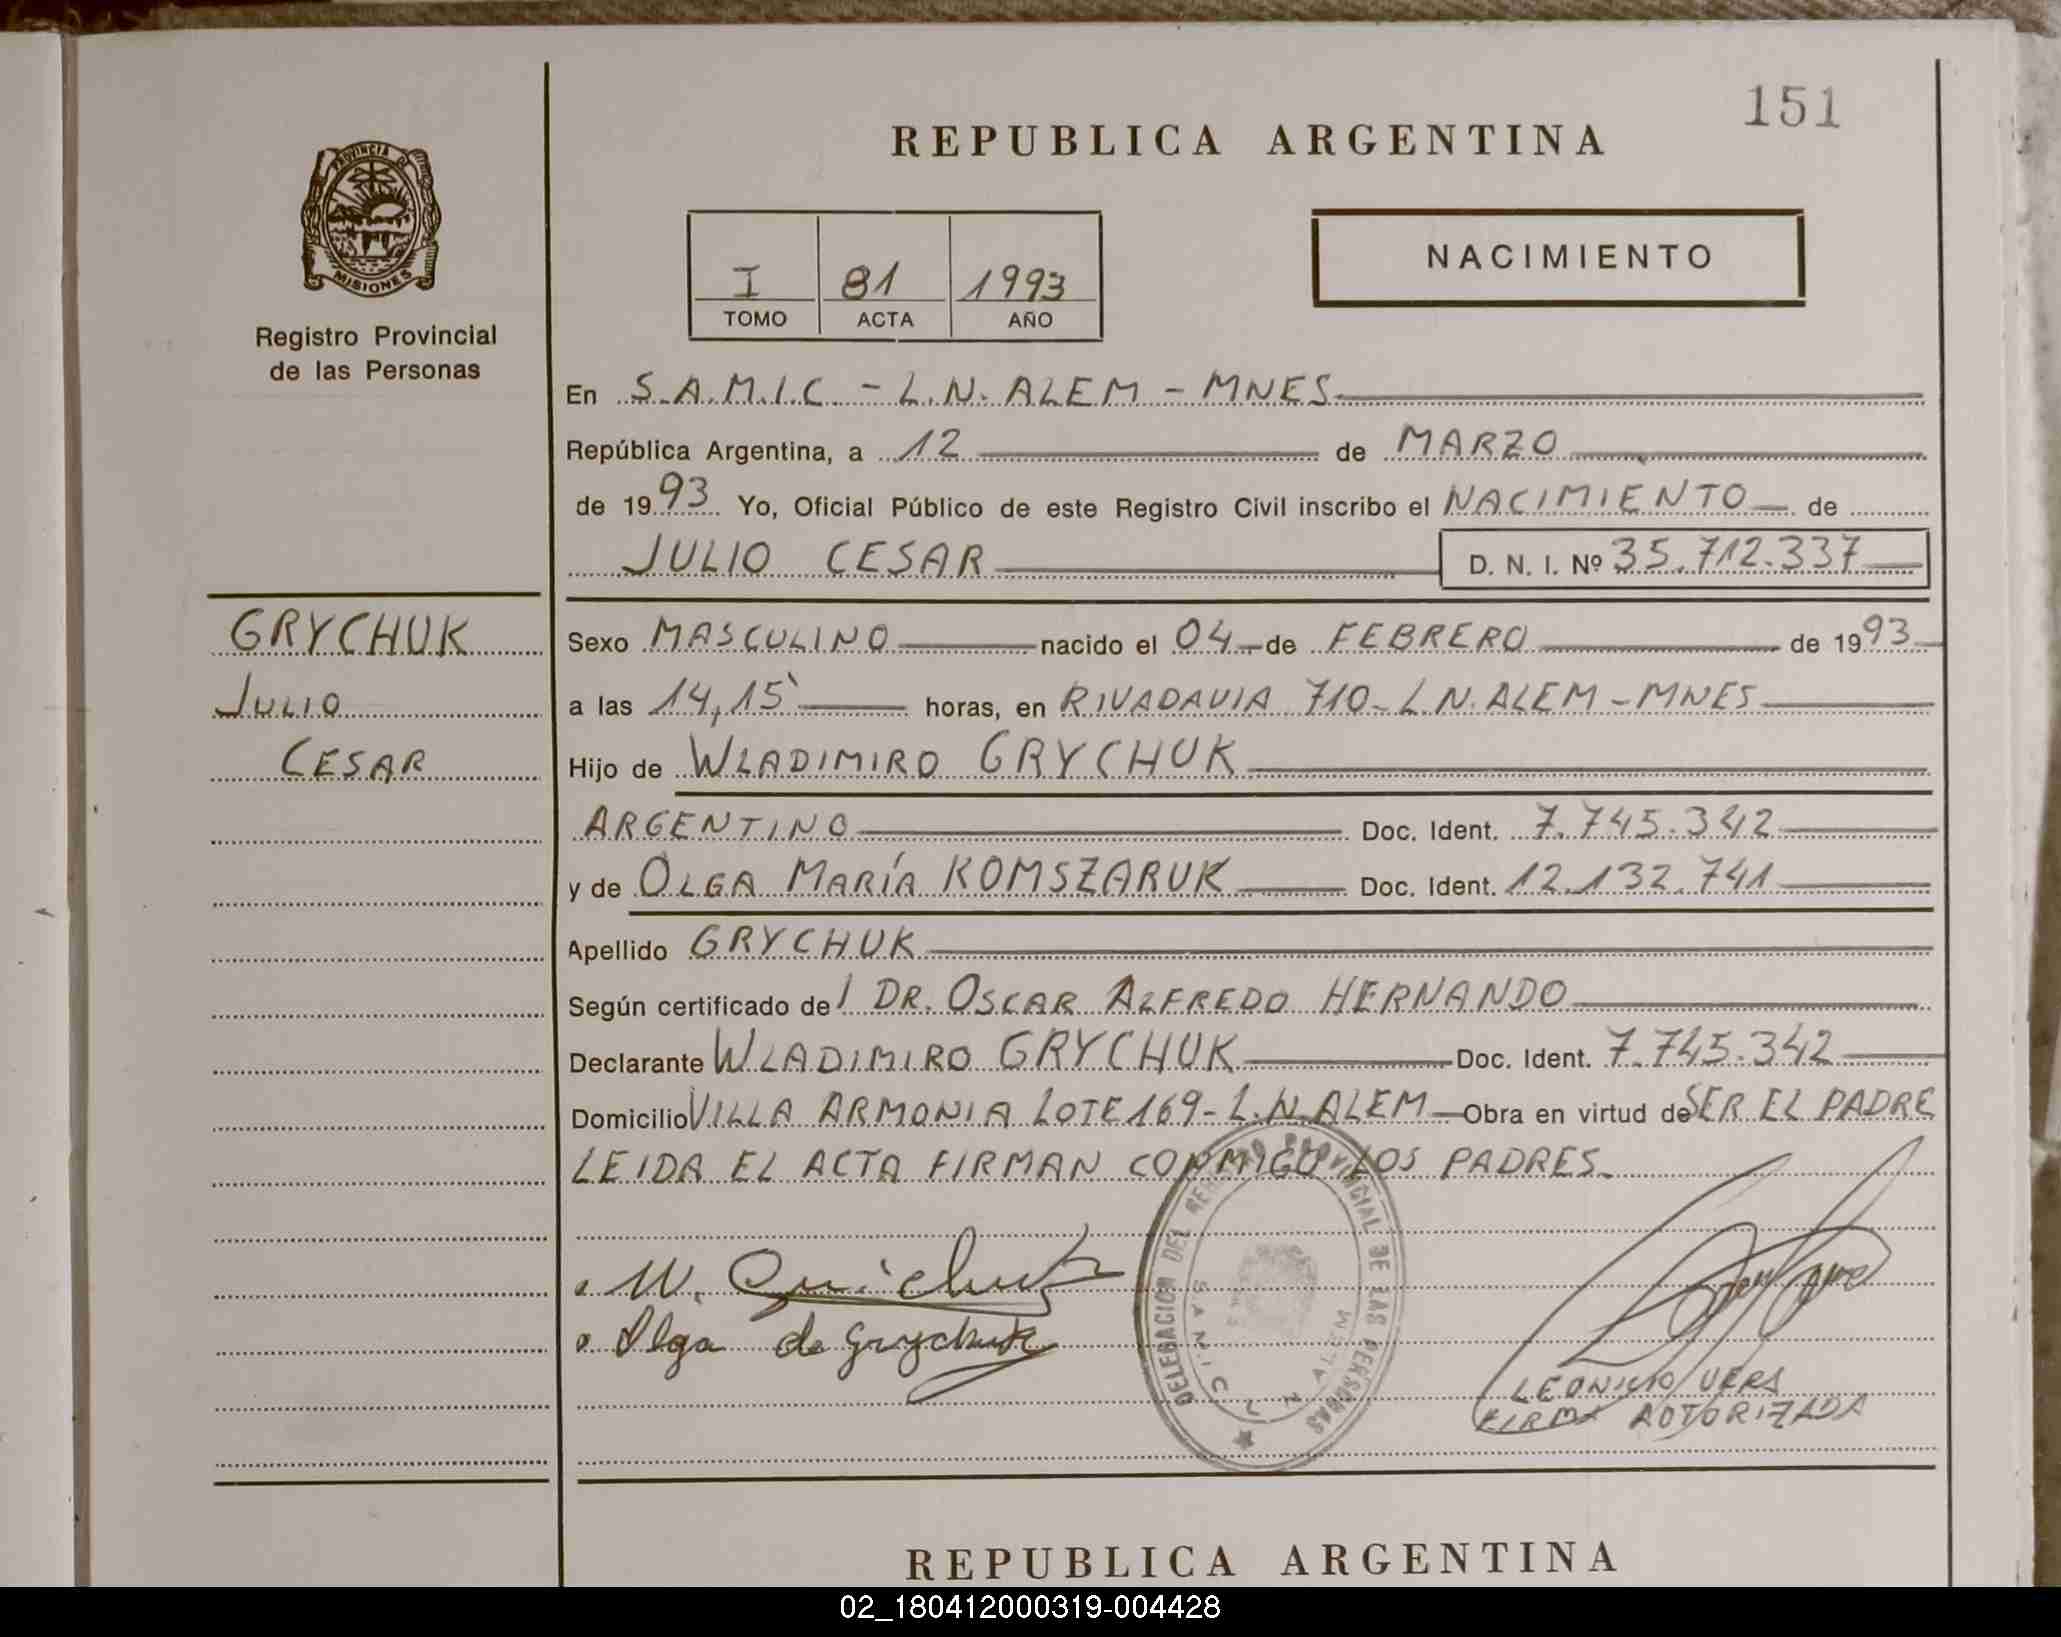 151
REPUBLICA ARGENTINA
PROVINCIA D
MISIONES
Registro Provincial
de las Personas
I 81 1993
TOMO ACTA AÑO
NACIMIENTO
En S.A.M.I.C. - L.N. ALEM - MNES
República Argentina, a 12 de MARZO
de 1993 Yo, Oficial Público de este Registro Civil inscribo el NACIMIENTO de
JULIO CESAR D. N. I. Nº 35.712.337
GRYCHUK
JULIO
CESAR
Sexo MASCULINO nacido el 04 de FEBRERO de 1993
a las 14,15 horas, en RIVADAVIA 710 - L.N. ALEM - MNES
Hijo de WLADIMIRO GRYCHUK
ARGENTINO Doc. Ident. 7.745.342
y de OLGA MARÍA KOMSZARUK Doc. Ident. 12.132.741
Apellido GRYCHUK
Según certificado del DR. OSCAR ALFREDO HERNANDO
Declarante WLADIMIRO GRYCHUK Doc. Ident. 7.745.342
Domicilio VILLA ARMONIA LOTE 169 - L.N. ALEM Obra en virtud de SER EL PADRE
LEIDA EL ACTA FIRMAN CONMIGO LOS PADRES.
DELEGACION DEL REGISTRO PROVINCIAL DE LAS PERSONAS
S.A.M.I.C. L. N. ALEM
Olga de Grychuk
LEONICIO VERA
FIRMA AUTORIZADA
REPUBLICA ARGENTINA
02_180412000319-004428